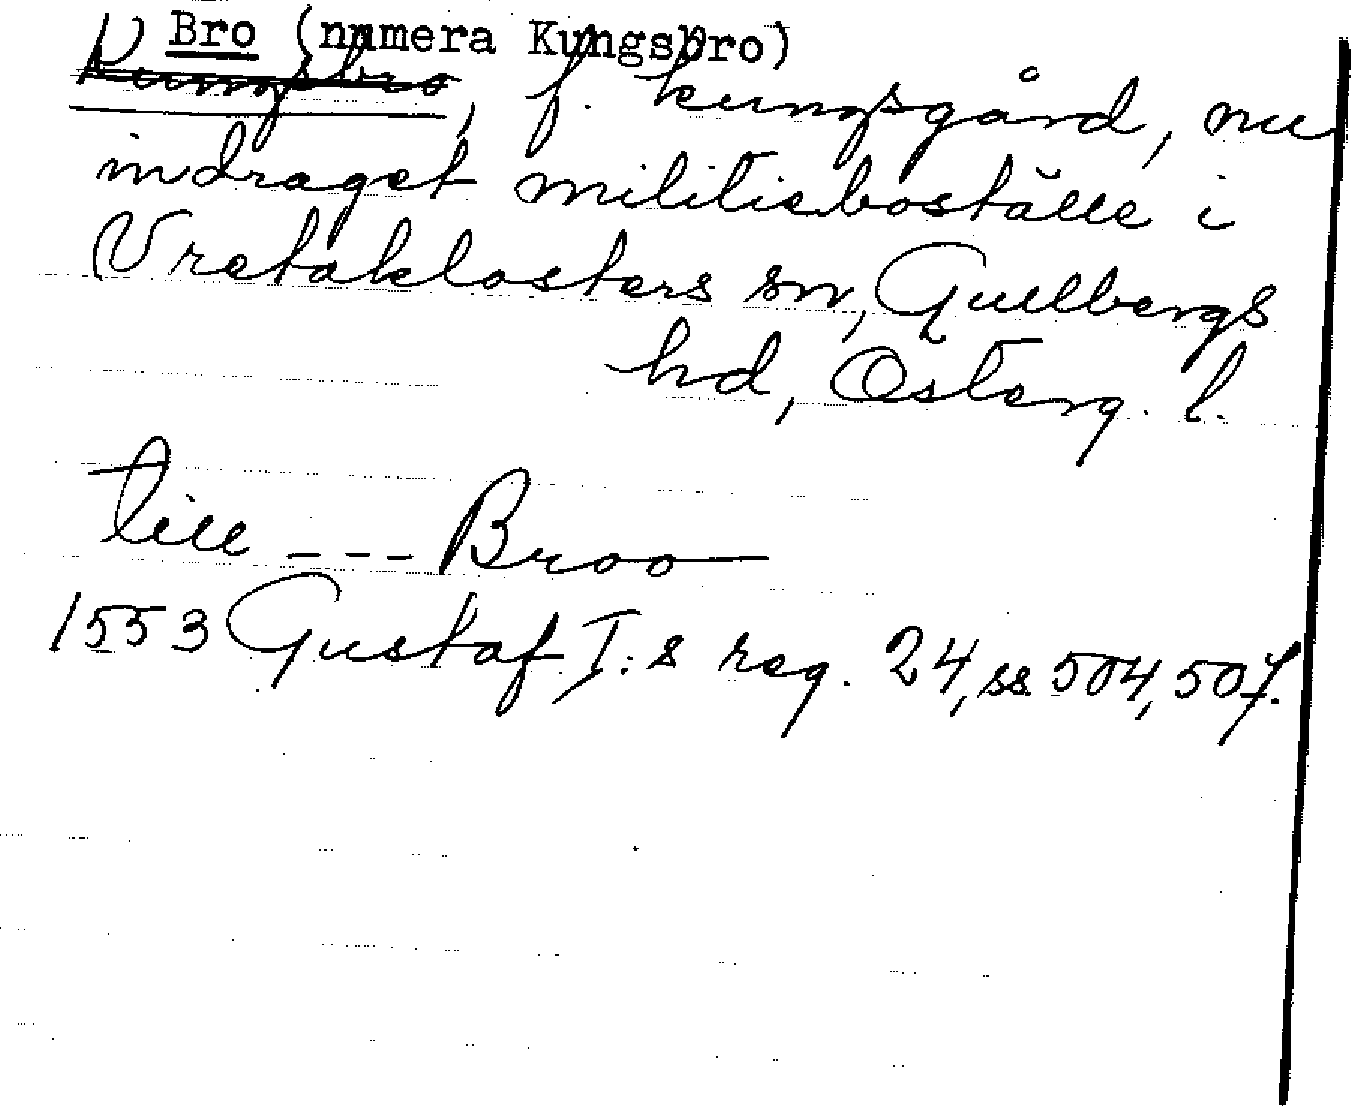 Bro (numera Kungsbro)
Kungsbro, f. kungsgård, nu
indraget militieboställe i
Vretaklosters sn, Gullbergs
hd, Österg. l.
till --- Broo
1553 Gustaf I:s reg. 24, ss 504, 507.